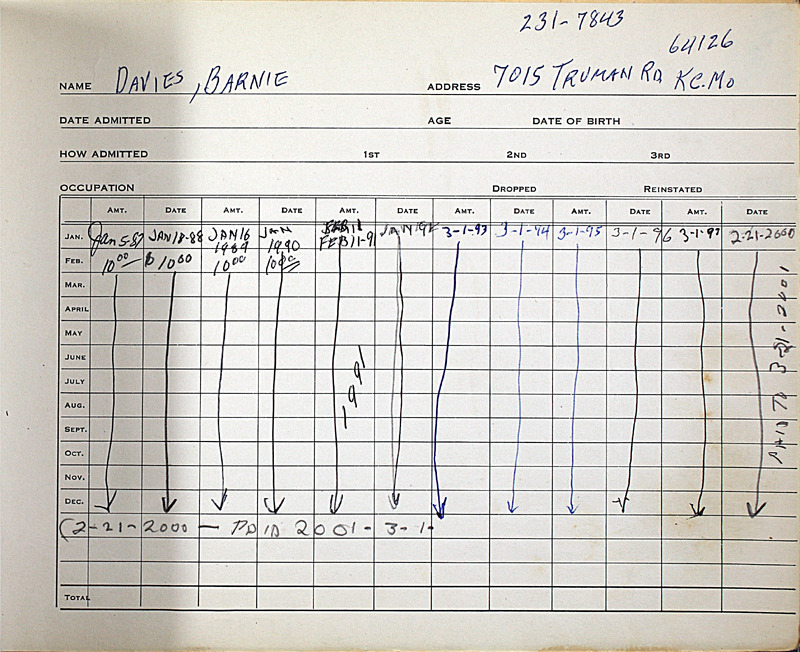 231-7843
64126
NAME DAVIES, BARNIE ADDRESS 7015 TRUMAN RD KC. MO
DATE ADMITTED AGE DATE OF BIRTH
HOW ADMITTED 1ST 2ND 3RD
OCCUPATION DROPPED REINSTATED
AMT. DATE AMT. DATE AMT. DATE AMT. DATE AMT. DATE AMT. DATE
JAN. Jan 5-87 JAN 18-88 JAN 16 JAN FEB 11 JAN 3-1-93 3-1-94 3-1-95 3-1-96 3-1-97 2-21-2000
1989 1990 FEB 11-91
FEB. 10 00 $ 10 00 10 00 10 00
MAR.
APRIL
MAY
JUNE
JULY
AUG.
SEPT.
OCT.
NOV.
DEC.
1991
PAID TO 3-21-2001
(2-21-2000 — PAID 2001-3-1-
TOTAL